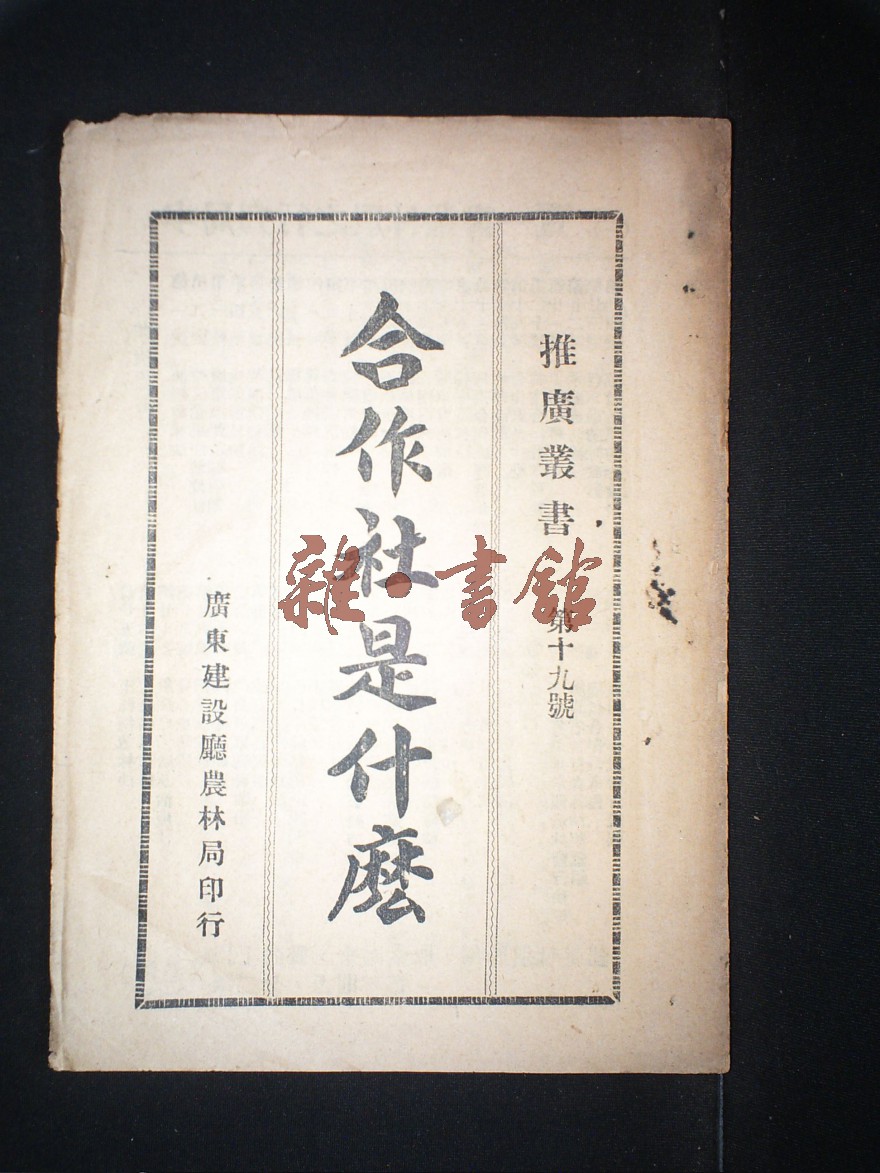 推廣叢書 第十九號
合作社是什麽
廣東建設廳農林局印行
雜·書館